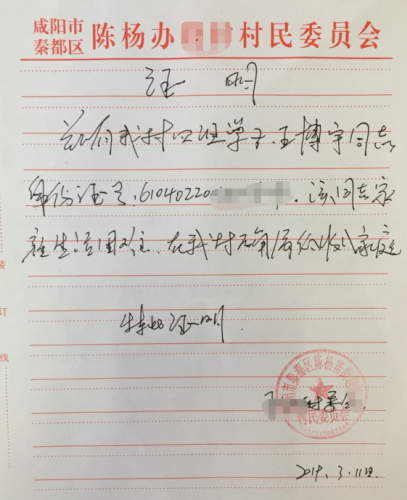 咸阳市
秦都区 陈杨办 村民委员会
证 明
兹有我村四组学子王博宇同志
身份证号:61040220 . 该同志家
庭生活困难. 在我村确属低收入家庭
特此证明
村委会
2019.3.11日
装
订
线